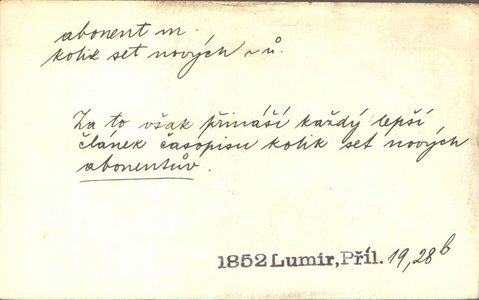 abonent m.
kolik set nových ~ ů.
Za to však přináší každý lepší
článek časopisu kolik set nových
abonentův.
1852 Lumír, Příl. 19, 28 b